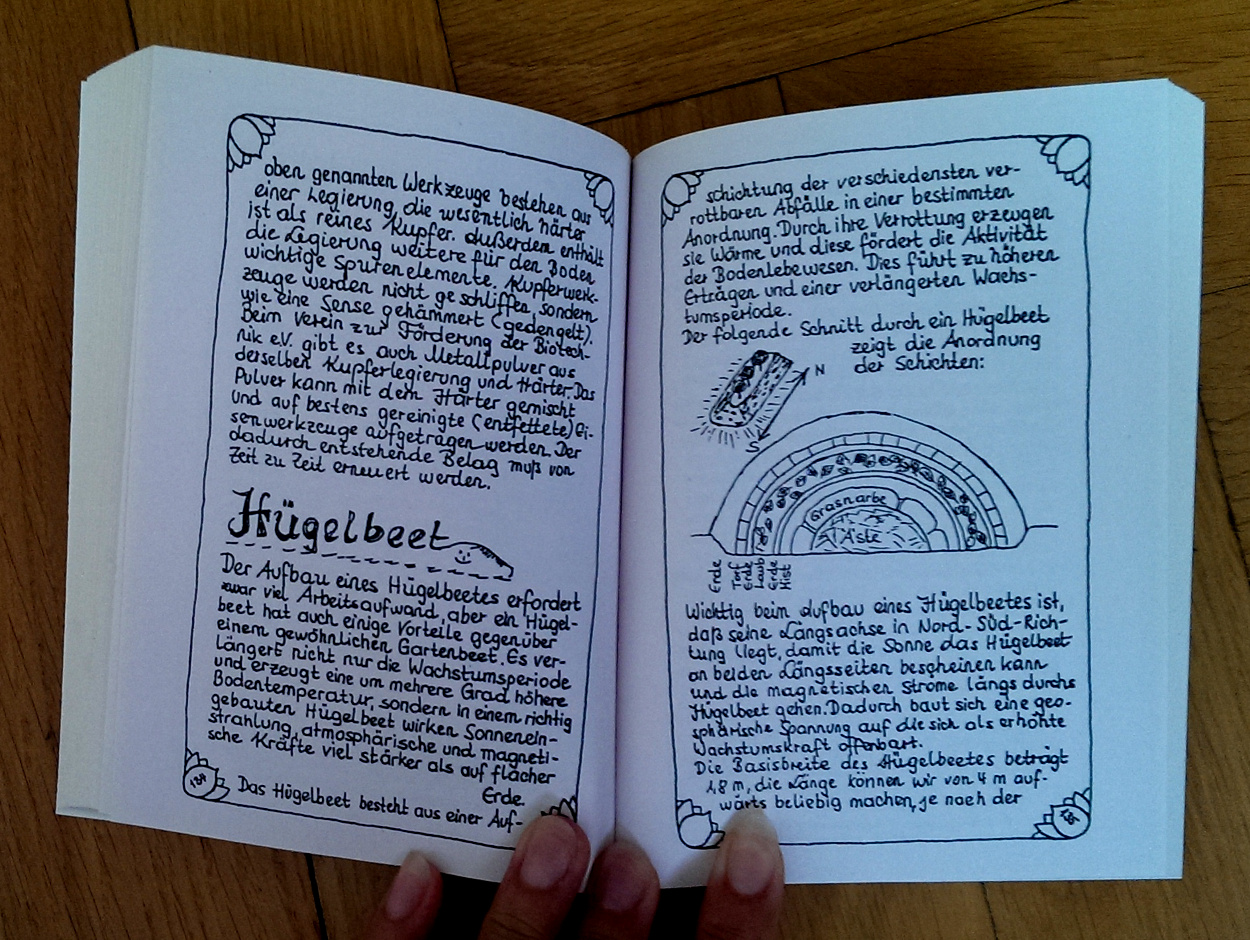 oben genannten Werkzeuge bestehen aus
einer Legierung, die wesentlich härter
ist als reines Kupfer. Außerdem enthält
die Legierung weitere für den Boden
wichtige Spurenelemente. Kupferwerk-
zeuge werden nicht geschliffen, sondern
wie eine Sense gehämmert (gedengelt).
Beim Verein zur Förderung der Biotech-
nik e.V. gibt es auch Metallpulver aus
derselben Kupferlegierung und Härter. Das
Pulver kann mit dem Härter gemischt
und auf bestens gereinigte (entfettete) Ei-
senwerkzeuge aufgetragen werden. Der
dadurch entstehende Belag muß von
Zeit zu Zeit erneuert werden.
Hügelbeet
Der Aufbau eines Hügelbeetes erfordert
zwar viel Arbeitsaufwand, aber ein Hügel-
beet hat auch einige Vorteile gegenüber
einem gewöhnlichen Gartenbeet. Es ver-
längert nicht nur die Wachstumsperiode
und erzeugt eine um mehrere Grad höhere
Bodentemperatur, sondern in einem richtig
gebauten Hügelbeet wirken Sonnenein-
strahlung, atmosphärische und magneti-
sche Kräfte viel stärker als auf flacher
Erde.
Das Hügelbeet besteht aus einer Auf-
schichtung der verschiedensten ver-
rottbaren Abfälle in einer bestimmten
Anordnung. Durch ihre Verrottung erzeugen
sie Wärme und diese fördert die Aktivität
der Bodenlebewesen. Dies führt zu höheren
Erträgen und einer verlängerten Wachs-
tumsperiode.
Der folgende Schnitt durch ein Hügelbeet
zeigt die Anordnung
der Schichten:
N
S
Grasnarbe
Äste
Erde
Torf
Erde
Laub
Erde
Mist
Wichtig beim Aufbau eines Hügelbeetes ist,
daß seine Längsachse in Nord-Süd-Rich-
tung liegt, damit die Sonne das Hügelbeet
an beiden Längsseiten bescheinen kann
und die magnetischen Ströme längs durchs
Hügelbeet gehen. Dadurch baut sich eine geo-
sphärische Spannung auf die sich als erhöhte
Wachstumskraft offenbart.
Die Basisbreite des Hügelbeetes beträgt
1,8 m, die Länge können wir von 4 m auf-
wärts beliebig machen, je nach der